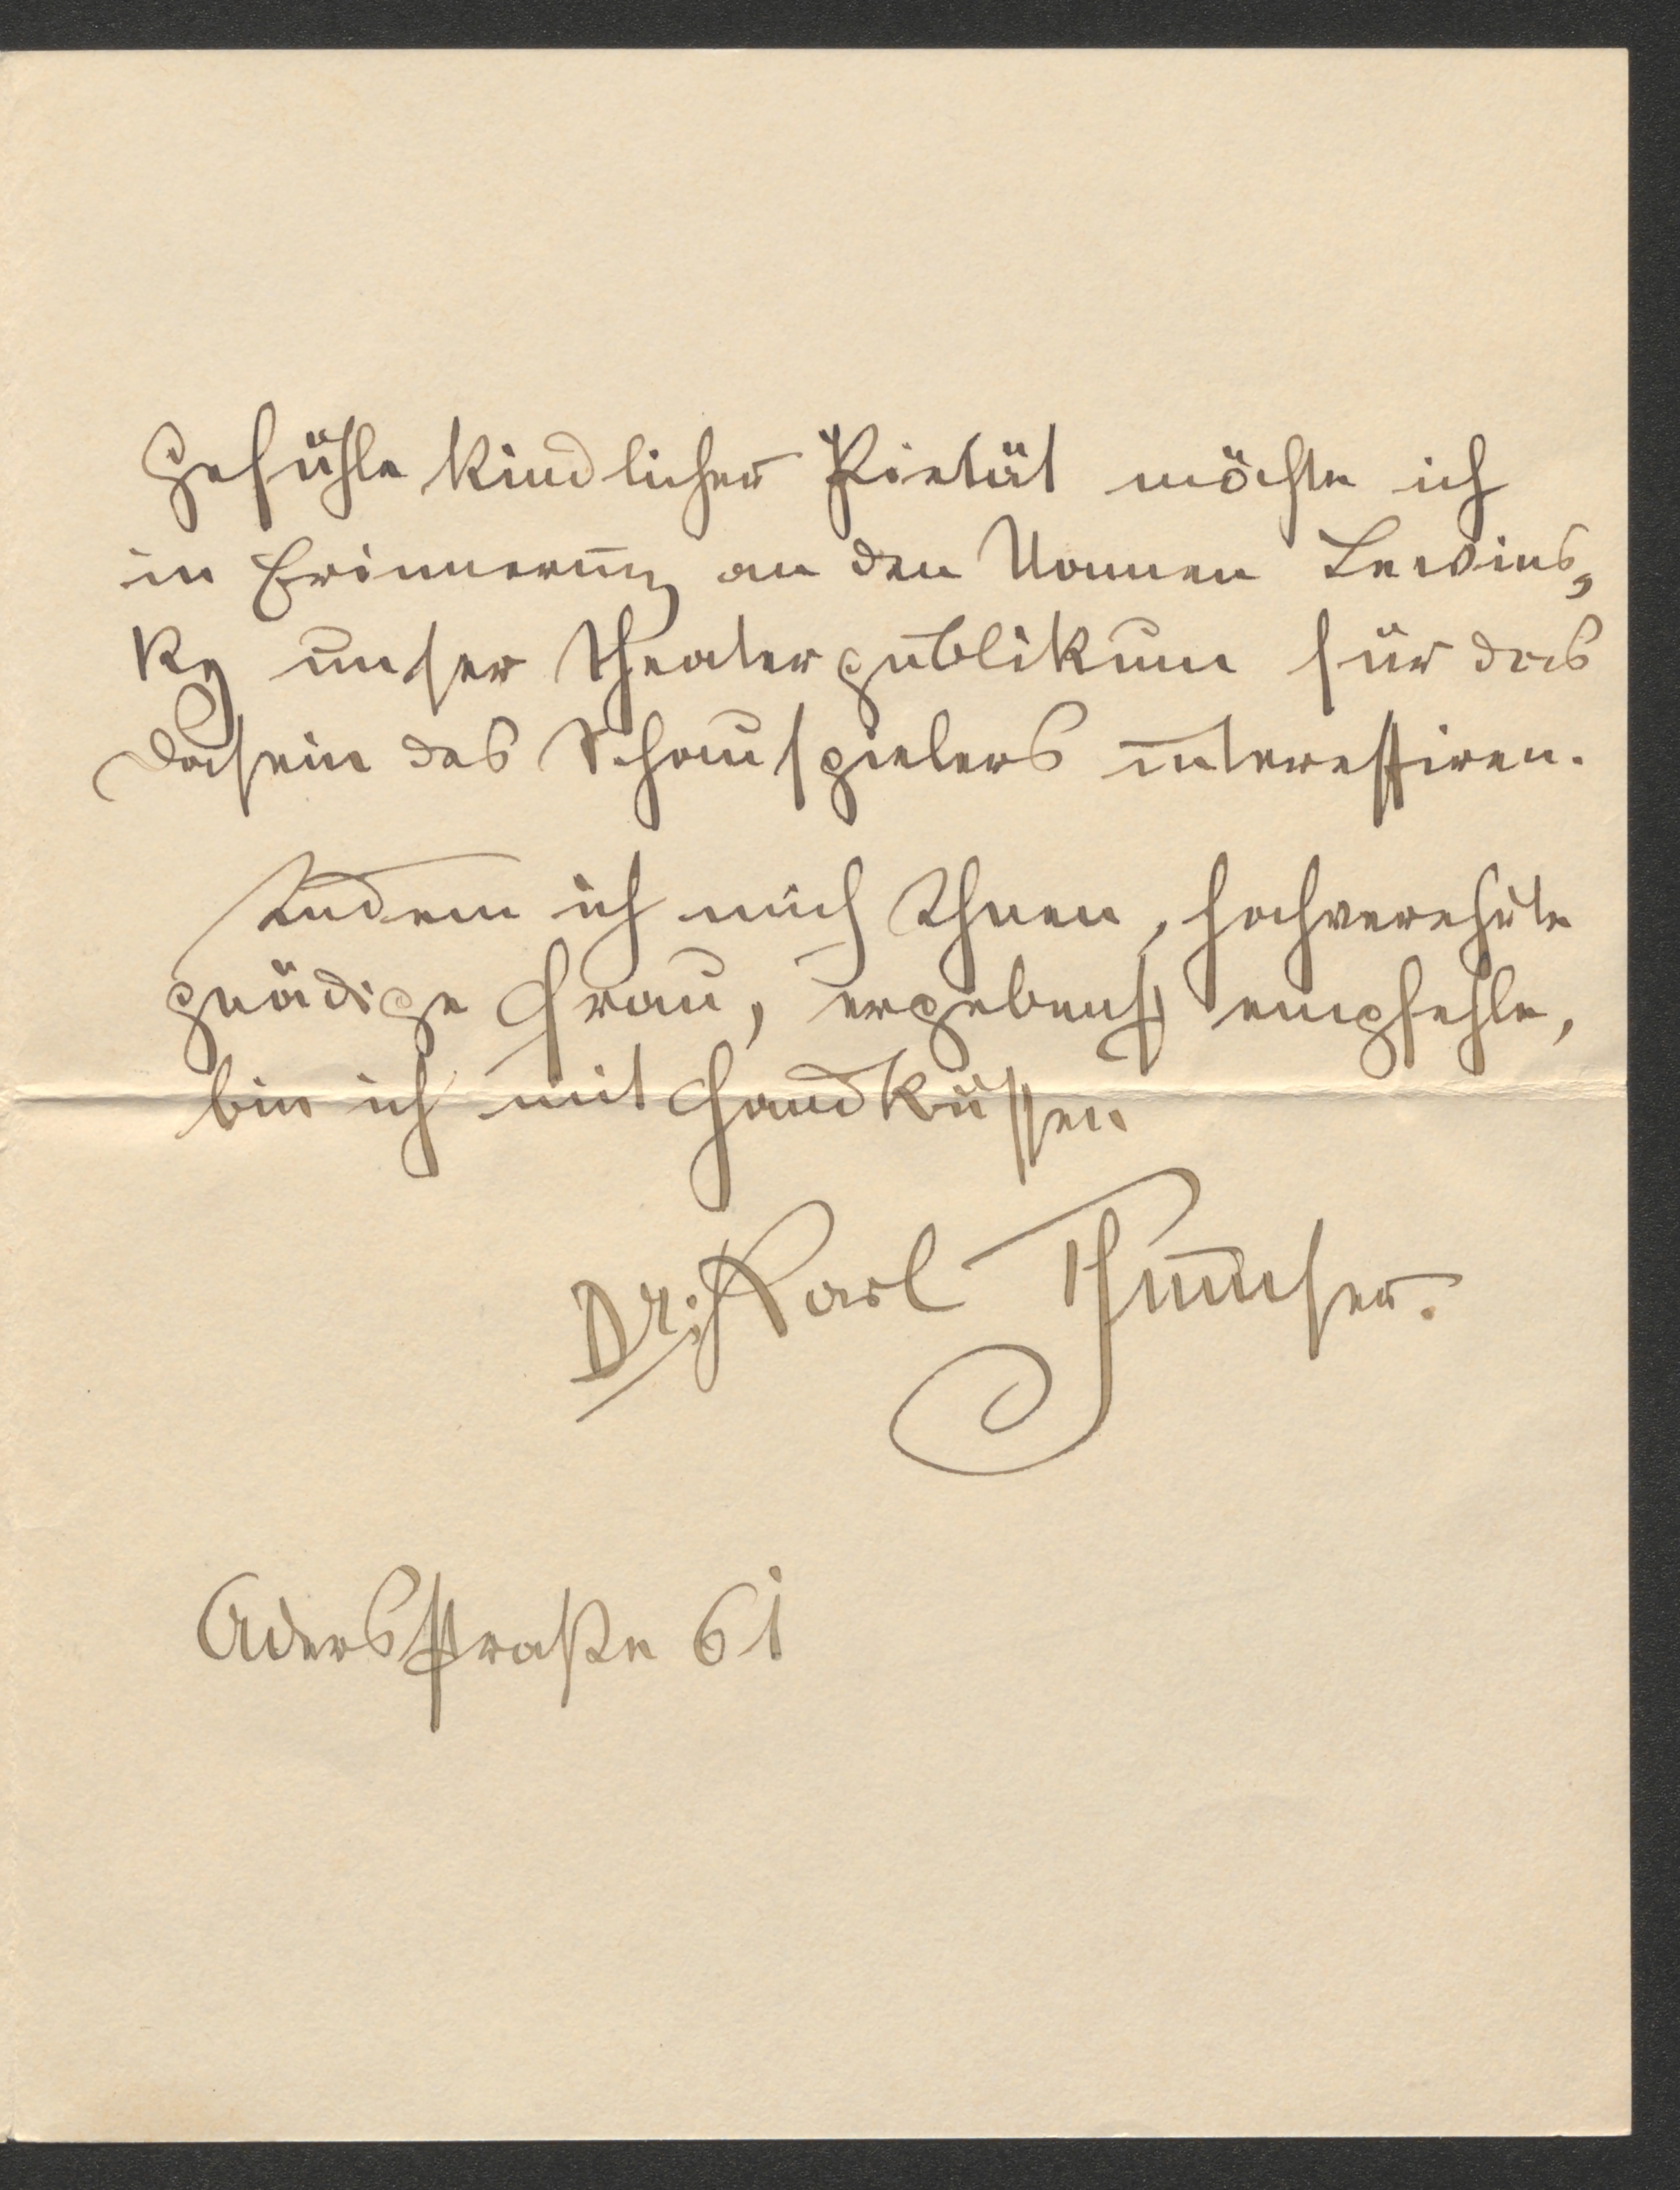 Gefühle kindlicher Pietät möchte ich
in Erinnerung an den Namen Lewins-
ky unser Theaterpublikum für das
Dasein des Schauspielers interessiren.
Indem ich mich Ihnen, hochverehrte
gnädige Frau, ergebenst empfehle,
bin ich mit Handküssen
Dr. Karl
Adersstraße 61